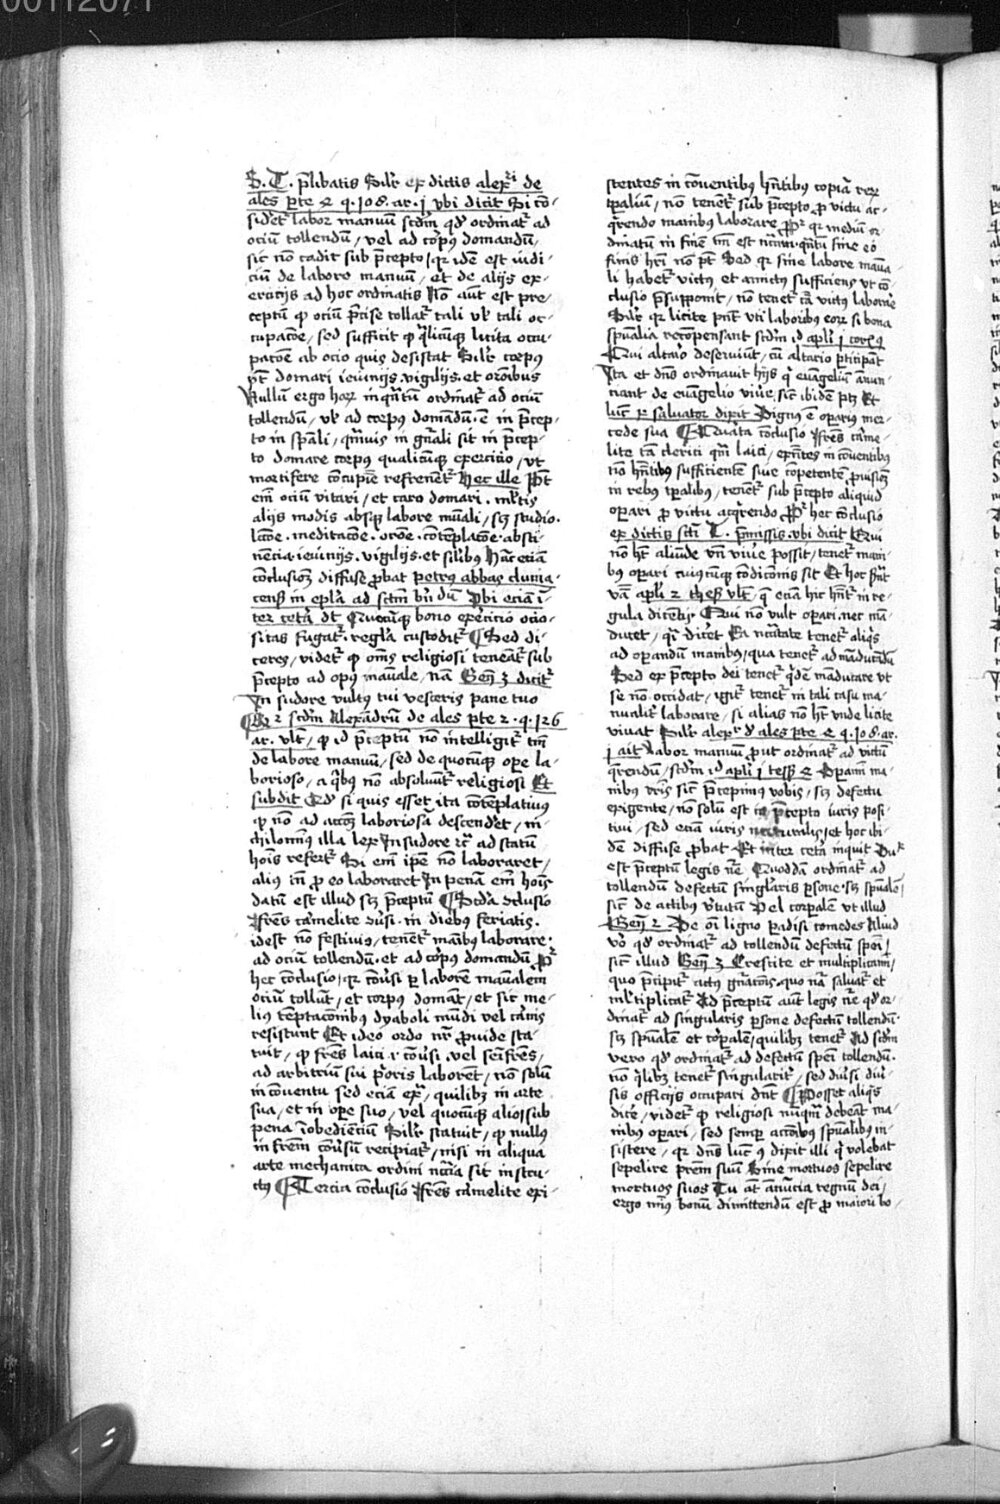 00112071
S. T. p̄libatis Silr̄ ex dictis alex̄i de
ales ꝑte 2 q. 108. ar. j vbi dicit Si cō-
sidet᷑ labor manuū scd̄m qd̓ ordinat᷑ ad
ociū tollendū / vel ad corpꝰ domandū /
sic nō cadit sub p̄cepto / qꝛ idē est iudi-
ciū de labore manuū / et de alijs ex-
ercicijs ad hoc ordinatis Nō aūt est pre-
ceptū ꝙ ociū p̄cise tollat᷑ tali vł tali oc-
cupacōe / sed sufficit ꝙ q̄licūqꝫ licita occu-
pacōe ab ocio quis desistat Silr̄ corpꝰ
pt̄ domari ieiunijs . vigilijs . et orōnibus
Nullū ergo hoꝝ inq̄ntū ordinat᷑ ad ociū
tollendū / vł ad corpꝰ domādū . ē in p̄cep-
to in sp̄ali / qm̄uis in gn̄ali sit in p̄cep-
to domare corpꝰ qualicūqꝫ exercicio / vt
mortifere cōcupīe refrenent᷑ Hec ille Pōt
em̄ ociū vitari / et caro domari . ml̓tis
alijs modis absqꝫ labore mūali / scꝫ studio .
lc̄one . meditacōe . orōe . cōtēplacōe . absti-
nēcia . ieiunijs . vigilijs . et silibꝰ Hāc eciā
cōclusionē diffuse ꝓbat petrꝰ abbas clunia-
cens̄ in ep̄la ad sct̄m bn̄ dū Vbi eciā ī-
ter cetā dt̄ Quocūqꝫ bono exercicio ocio-
sitas fugat᷑ . regl̓a custodit᷑ ¶ Sed di-
ceres / videt᷑ ꝙ om̄s religiosi teneāt᷑ sub
p̄cepto ad opꝰ manuale / nā Gen̄ 3 dicit᷑
In sudore vultꝰ tui vesceris pane tuo
¶ R 2 scd̄m Alexandrū de ales ꝑte 2 . q . 126
ar . vlt̄ / ꝙ id p̄ceptū nō intelligit᷑ tm̄
de labore manuū / sed de quocūqꝫ oꝑe la-
borioso / a q̓bꝰ nō absoluūt᷑ religiosi Et
subdit Qd̓ si quis esset ita cōtēplatiuꝰ
ꝙ nō ad accōꝫ laboriosā descend̓et / ni-
chilominꝰ illa lex In sudore ꝛc̄ ad statū
hoīs refert᷑ Si em̄ ip̄e nō laboraret /
aliꝰ tn̄ ꝓ eo laboraret In penā em̄ hoīs
datū est illud scꝫ p̄ceptū ¶ Scd̓a ↄclusio
Fr̄es carmelite ↄuersi . in diebꝰ feriatis .
idest nō festiuis / tenent᷑ maibꝰ laborare .
ad ociū tollendū . et ad corpꝰ domandū Pꝫ
hec cōclusio / qꝛ cōuersi ꝑ laborē manualem
ociū tollūt / et corpꝰ domāt / et sic me-
liꝰ tēptacōnibꝰ dyaboli mūdi vel carnis
resistunt Et ideo ordo nr̄ ꝓuide sta-
tuit / ꝙ fr̄es laici ꝛ cōuersi . vel semifr̄es /
ad arbitriū sui prioris laborēt / nō solū
in conuentu sed eciā extra / quilibꝫ in arte
sua / et in oꝑe suo / vel quocūqꝫ alio / sub
pena īobedienciū Silr̄ statuit / ꝙ nullꝰ
in frem̄ cōuersū recipiat᷑ / nisi in aliqua
arte mechanica ordini nccīa sit instru-
ctꝰ ¶ Tercia cōclusio Fr̄es carmelite exi-
stentes in cōuentibꝰ hn̄tibꝰ copiā reꝝ
tꝑaliū / nō tenent᷑ sub p̄cepto ꝓ victu ac-
q̄rendo manibꝰ laborare Pꝫ qꝛ mediū or-
dinatū in finē tm̄ est nccīm q̄ntū sine eo
finis hr̄i nō pt̄ Sed qꝛ sine labore manua-
li habet᷑ victꝰ et amictꝰ sufficiens vt cō-
clusio p̄supponit / nō tenet᷑ cā victꝰ laborare
Silr̄ qꝛ licite pn̄t vti laboribꝰ eoꝝ si bona
sp̄ualia recōpensant scd̄m id apl̓i j corꝰ 9
Qui altario deseruiūt / cū altario ꝑticipant
Ita et dn̄s ordinauit hijs q̓ euangeliū annun-
ciant de euangelio viuē sic ibidē pꝫ Et
luc̄ 10 saluator dixit Dignꝰ ē oꝑariꝰ mer-
cede sua ¶ Quarta cōclusio Fr̄es carme-
lite tā clerici qm̄ laici / exn̄tes in cōuentibꝰ
nō hn̄tibꝰ sufficientē siue cōpetentē ꝓuisionē
in rebꝰ tꝑalibꝰ / tenent᷑ sub p̄cepto aliquid
oꝑari ꝓ victu acq̓rendo Pꝫ hec cōclusio
ex dictis scti T. p̄missis . vbi dicit Qui
nō hꝫ aliunde vn̄ viuē possit / tenet᷑ mani-
bꝰ oꝑari cuiuscūqꝫ cōdicionis sit Et hoc sn̄t
vā apl̓i 2 thes̄ vlt̄ q̄ eciā hic hn̄t᷑ in re-
gula dicentis Qui nō vult oꝑari . nec mā-
ducet / q̓ diceret Ea nccītate tenet᷑ aliq̓s
ad oꝑandū manibꝰ / qua tenet᷑ ad māducādū
Sed ex p̄cepto dei tenet᷑ q̓dē māducare vt
se nō occidat / igit᷑ tenet᷑ in tali casu ma-
nualit᷑ laborare / si alias nō hꝫ vnde licite
viuat Silr̄ alex̄ d̓ ales ꝑte 2 q . 108 . ar .
j ait Labor manuū ꝓut ordinat᷑ ad victū
q̄rendū / scd̄m id apl̓i j tess̄ 2 Oꝑamī ma-
nibꝰ vr̄is sic̄ p̄cepimꝰ vobis / scꝫ defectu
exigente / nō solū est in p̄cepto iuris posi-
tiui / sed eciā iuris naturalis / et hoc ibi-
dē diffuse ꝓbat Et inter cetā inquit Du
est p̄ceptū legis nē Quoddā ordinat᷑ ad
tollendū defectū singl̓aris ꝑsone . scꝫ sp̄ualē /
sic̄ de actibꝰ v̓tutū Vel corꝑalē vt illud
Gen̄ 2 De oī ligno ꝑadisi comedes Aliud
vō qd̓ ordinat᷑ ad tollendū defectū spēi
sic̄ illud Gen̄ 3 Crescite et multiplicamī /
quo p̄cipit᷑ actꝰ gn̄acōis . quo nā saluat᷑ et
ml̓tiplicat᷑ Ad p̄ceptū aut legis nē qd̓ or-
dinat᷑ ad singularis ꝑsone defectū tollendū .
scꝫ sp̄ualē et corꝑalē / quilibꝫ tenet᷑ Ad scd̄m
vero qd̓ ordinat᷑ ad defectū spēi tollendū .
nō q̓libꝫ tenet᷑ singularit᷑ / sed diuersi diu̓-
sis officijs occupari dn̄t ¶ Posset aliq̓s
dicē / videt᷑ ꝙ religiosi nūqm̄ debeāt ma-
nibꝰ oꝑari / sed semꝑ accōibꝰ sp̄ualibꝰ in-
sistere / qꝛ dn̄s luc̄ 9 dixit illi q̓ volebat
sepelire prem̄ suū Sine mortuos sepelire
mortuos suos Tu āt ānūcia regnū dei /
ergo minꝰ bonū dimittendū est ꝓ maiori bo-